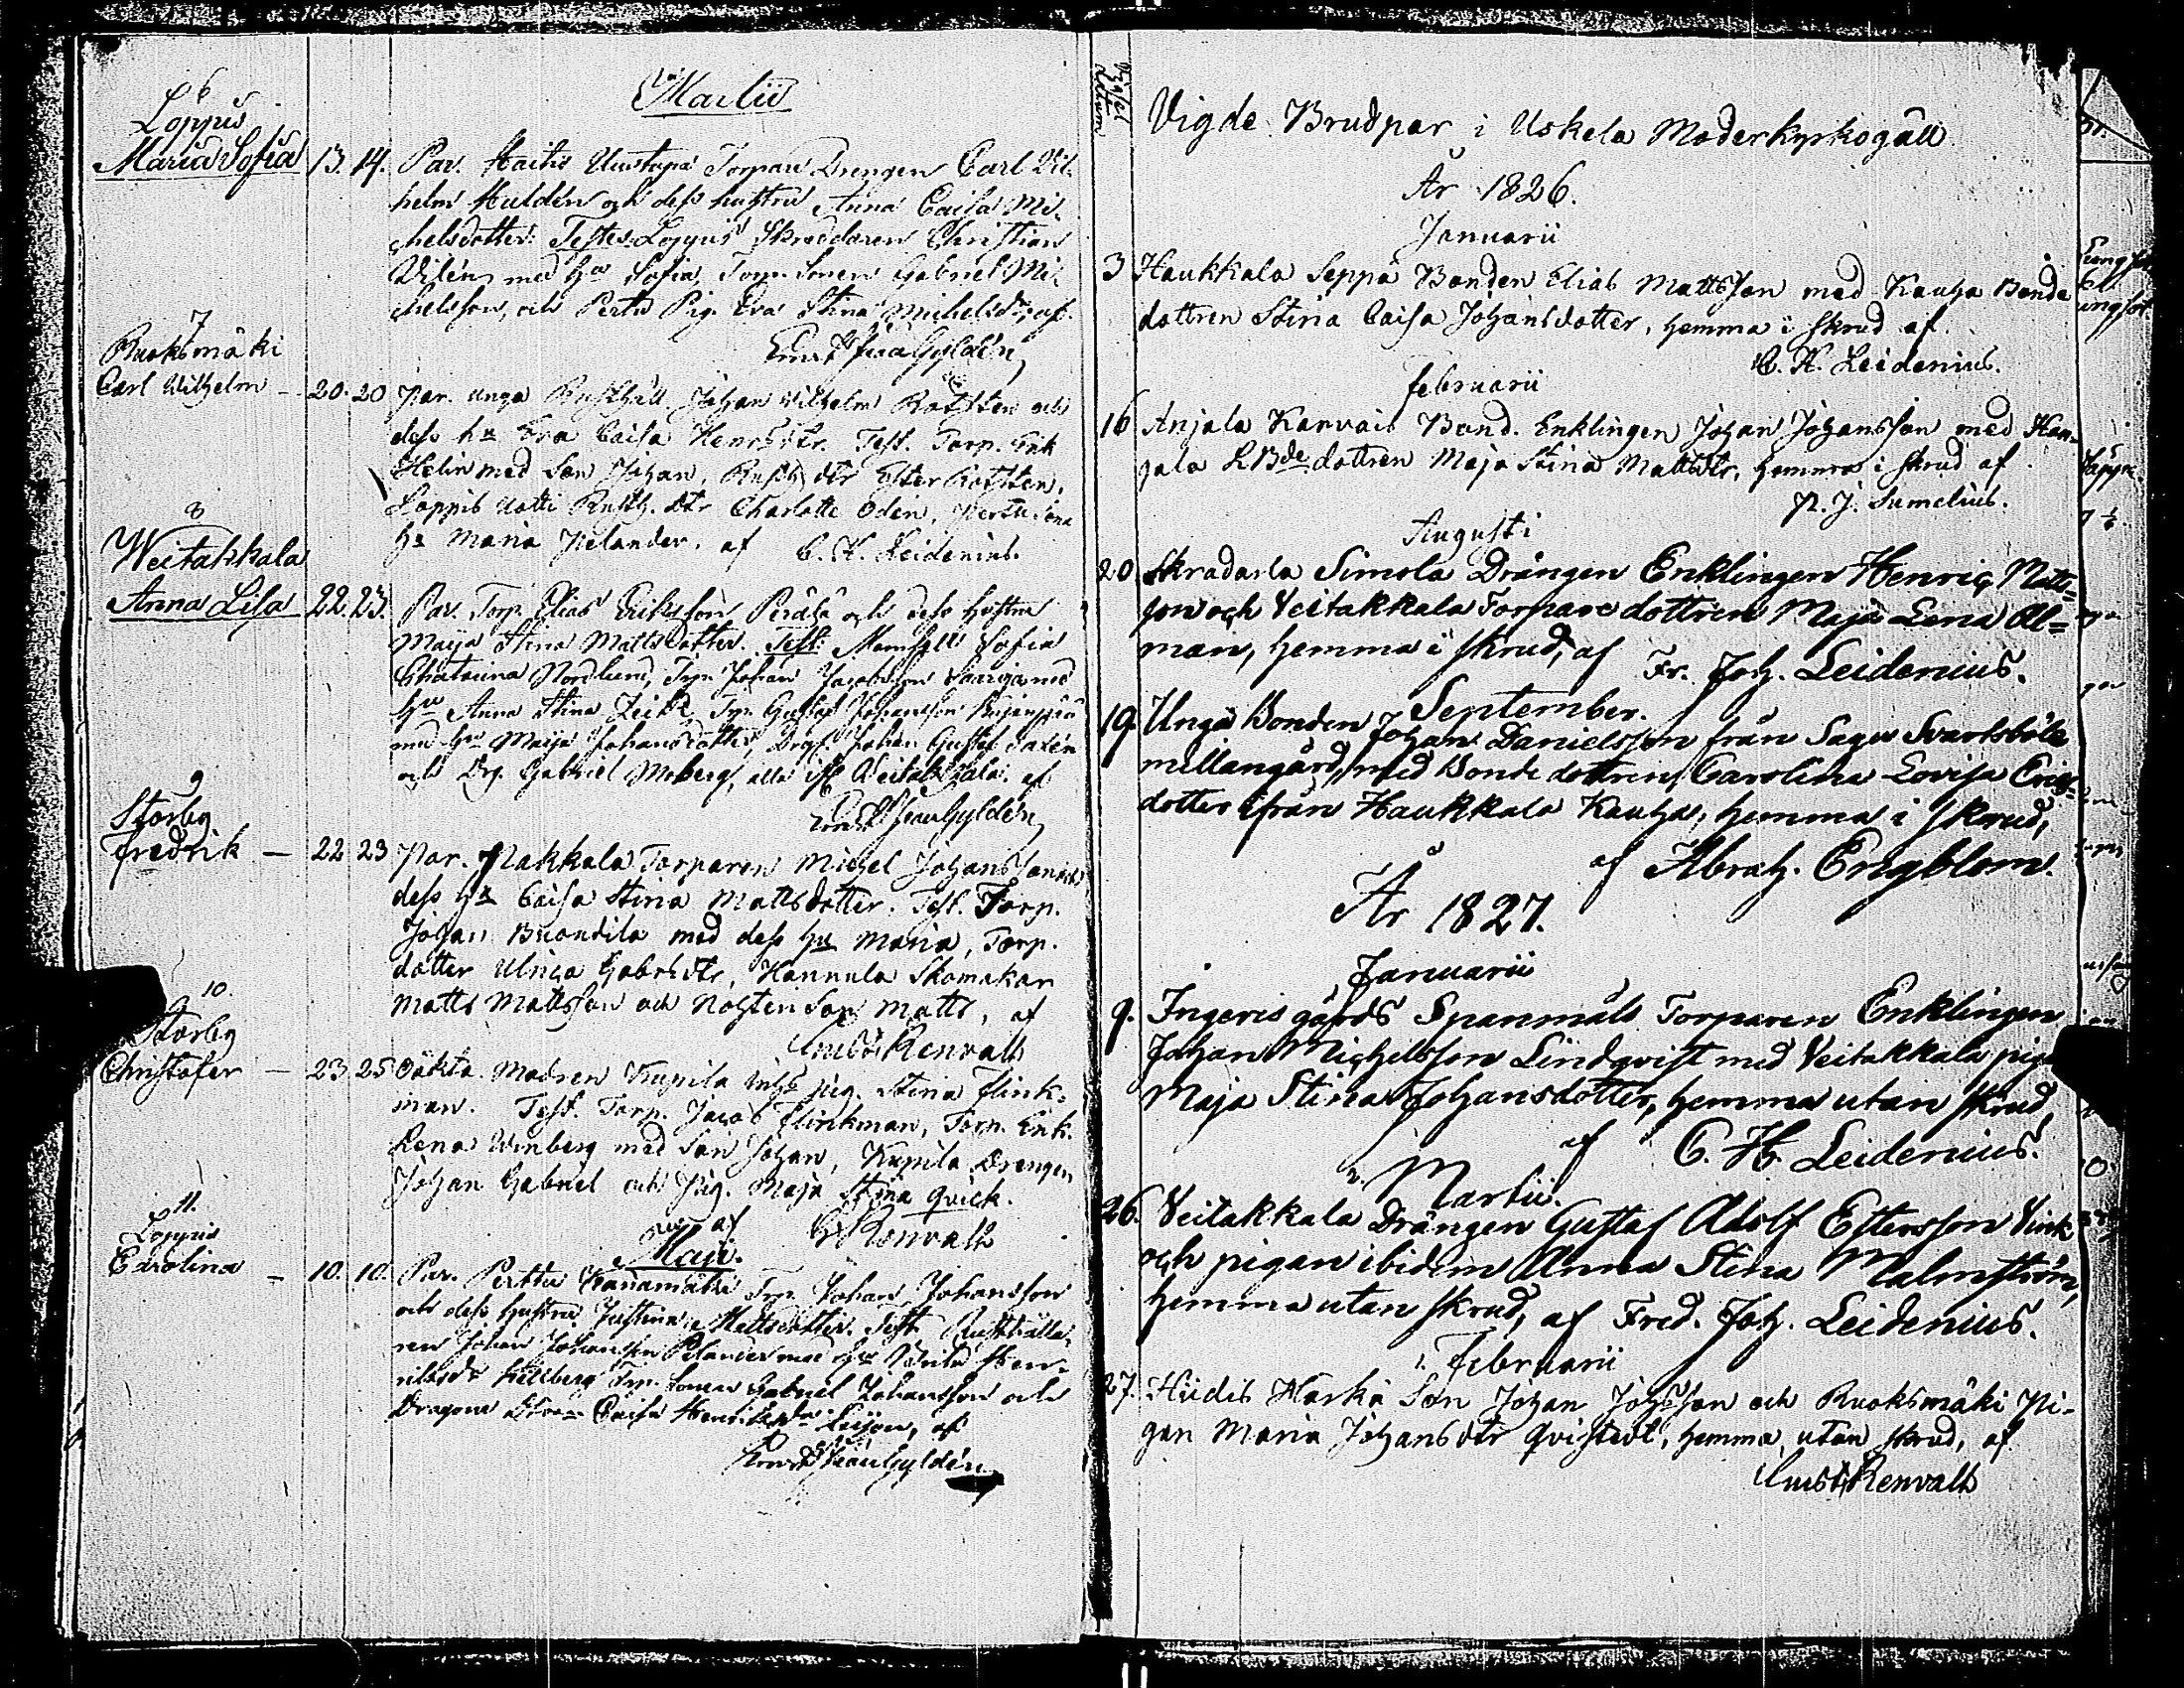 Martii
6
Loppis
Maria Sofia 13. 14. Par. Haitis Uustupa Torpare Drengen Carl Vil-
helm Huldén och dess hustru Anna Caisa Mi-
chelsdotter: Testes: Loppis Skräddaren Christian
Vilén med Hu Sofia, Torp. Sonen Gabriel Mi-
chelsson, och Perttu Pig. Eva Stina Michelsdr, af
Ernst Jean Gyldén
7
Ruoksmäki
Carl Wilhelm – 20. 20 Par. unga Rusthåll. Johan Wilhelm Rotsten och
dess hu Eva Caisa Henrsdtr. Test. Torp. Enk
Helin med Son Johan, Rusth. dtr Ester Rotsten,
Loppis Uotti Rusth. dtr Charlotte Odén, Perttu
hu Maria Pelander, af C. H. Leidenius.
8
Weitakkala
Anna Lisa 22. 23. Par. Torp. Elias Eriksson och dess hustru
Maija Stina Mattsdotter. Test: Mamsell Sofia
Chatarina Nordlund, Torp. Johan Jacobsson med
Hu Anna Stina Torp. Gustaf Johansson
med Hu Maija Johansdotter, Drg. Johan Gustaf
och Drg. Gabriel Moberg, alla ifr. Weitakkala, af
Ernst Jean Gyldén
9
Storby
Fredrik – 22 23 Par. Pakkala Torparen Michel Johansson och
dess hu Caisa Stina Mattsdotter. Test. Torp.
Johan Buondila med dess hu Maria, Torp.
dotter Ulrica Gabrsdtr, Hannula Skomakar
Matts Mattsson och Son Matts, af
Renvall
10.
Storby
Christofer – 23 25 Oäkta. Modren Kupila inhs pig. Stina Flink-
man. Test. Torp. Jacob Flinkman, Torp. Enk.
Lena Winberg med Son Johan, Kupila Drengen
Johan Gabriel och Pig. Maja Stina Qvick.
af Renvall
Maji.
11.
Loppis
Carolina – 10. 10. Par. Perttu Torp. Johan Johansson
och dess hustru Justina Mattsdotter. Test. Rusthålla-
ren Johan Johansson Pelander med Hu Hen-
riksdr Hellberg Torp. Sonen Gabriel Johansson och
Dragone Caisa Henriksdr af
Ernst Jean Gyldén
Vigsel
datum
Vigde Brudpar i Uskela Moderkyrkogäll
År 1826.
Januarii
3 Haukkala Seppä Bonden Elias Mattsson med Kauha Bonde
dottren Stina Caisa Johansdotter, hemma i skrud af
C. H. Leidenius.
Februarii
16 Anjala Karvais Bond. Enklingen Johan Johansson med
dottren Maja Stina Mattsdtr, hemma i skrud af
P. J. Sumelius.
Augusti
20 Skradarla Simola Drängen Enklingen Henric Matts-
son och Veitakkala Torpare dottren Maja Lena Al=
man, hemma i skrud, af Fr. Joh. Leidenius.
September.
19. Unga Bonden Johan Danielsson från Sagu Svartsböle
mellangård, med Bonde dottren Carolina Lovisa Erics-
dotter ifrån Haukkala Kauha, hemma i skrud,
af Abrah. Engblom.
År 1827.
Januarii
9. Ingeris gårds Spanmåls Torparen Enklingen
Johan Michelsson Lindqvist med Veitakkala pig
Maja Stina Johansdotter, hemma utan skrud,
af C. H. Leidenius.
2. Martii.
26. Veitakkala Drängen Gustaf Adolf Estersson Vink
och pigan ibidem Anna Stina Malmström,
hemma utan skrud, af Fred. Joh. Leidenius.
1. Februarii
27. Hiidis Harka Son Johan Johsson och Ruoksmäki Pi-
gan Maria Johansdtr Qvistedt, hemma, utan skrud, af
Renvall